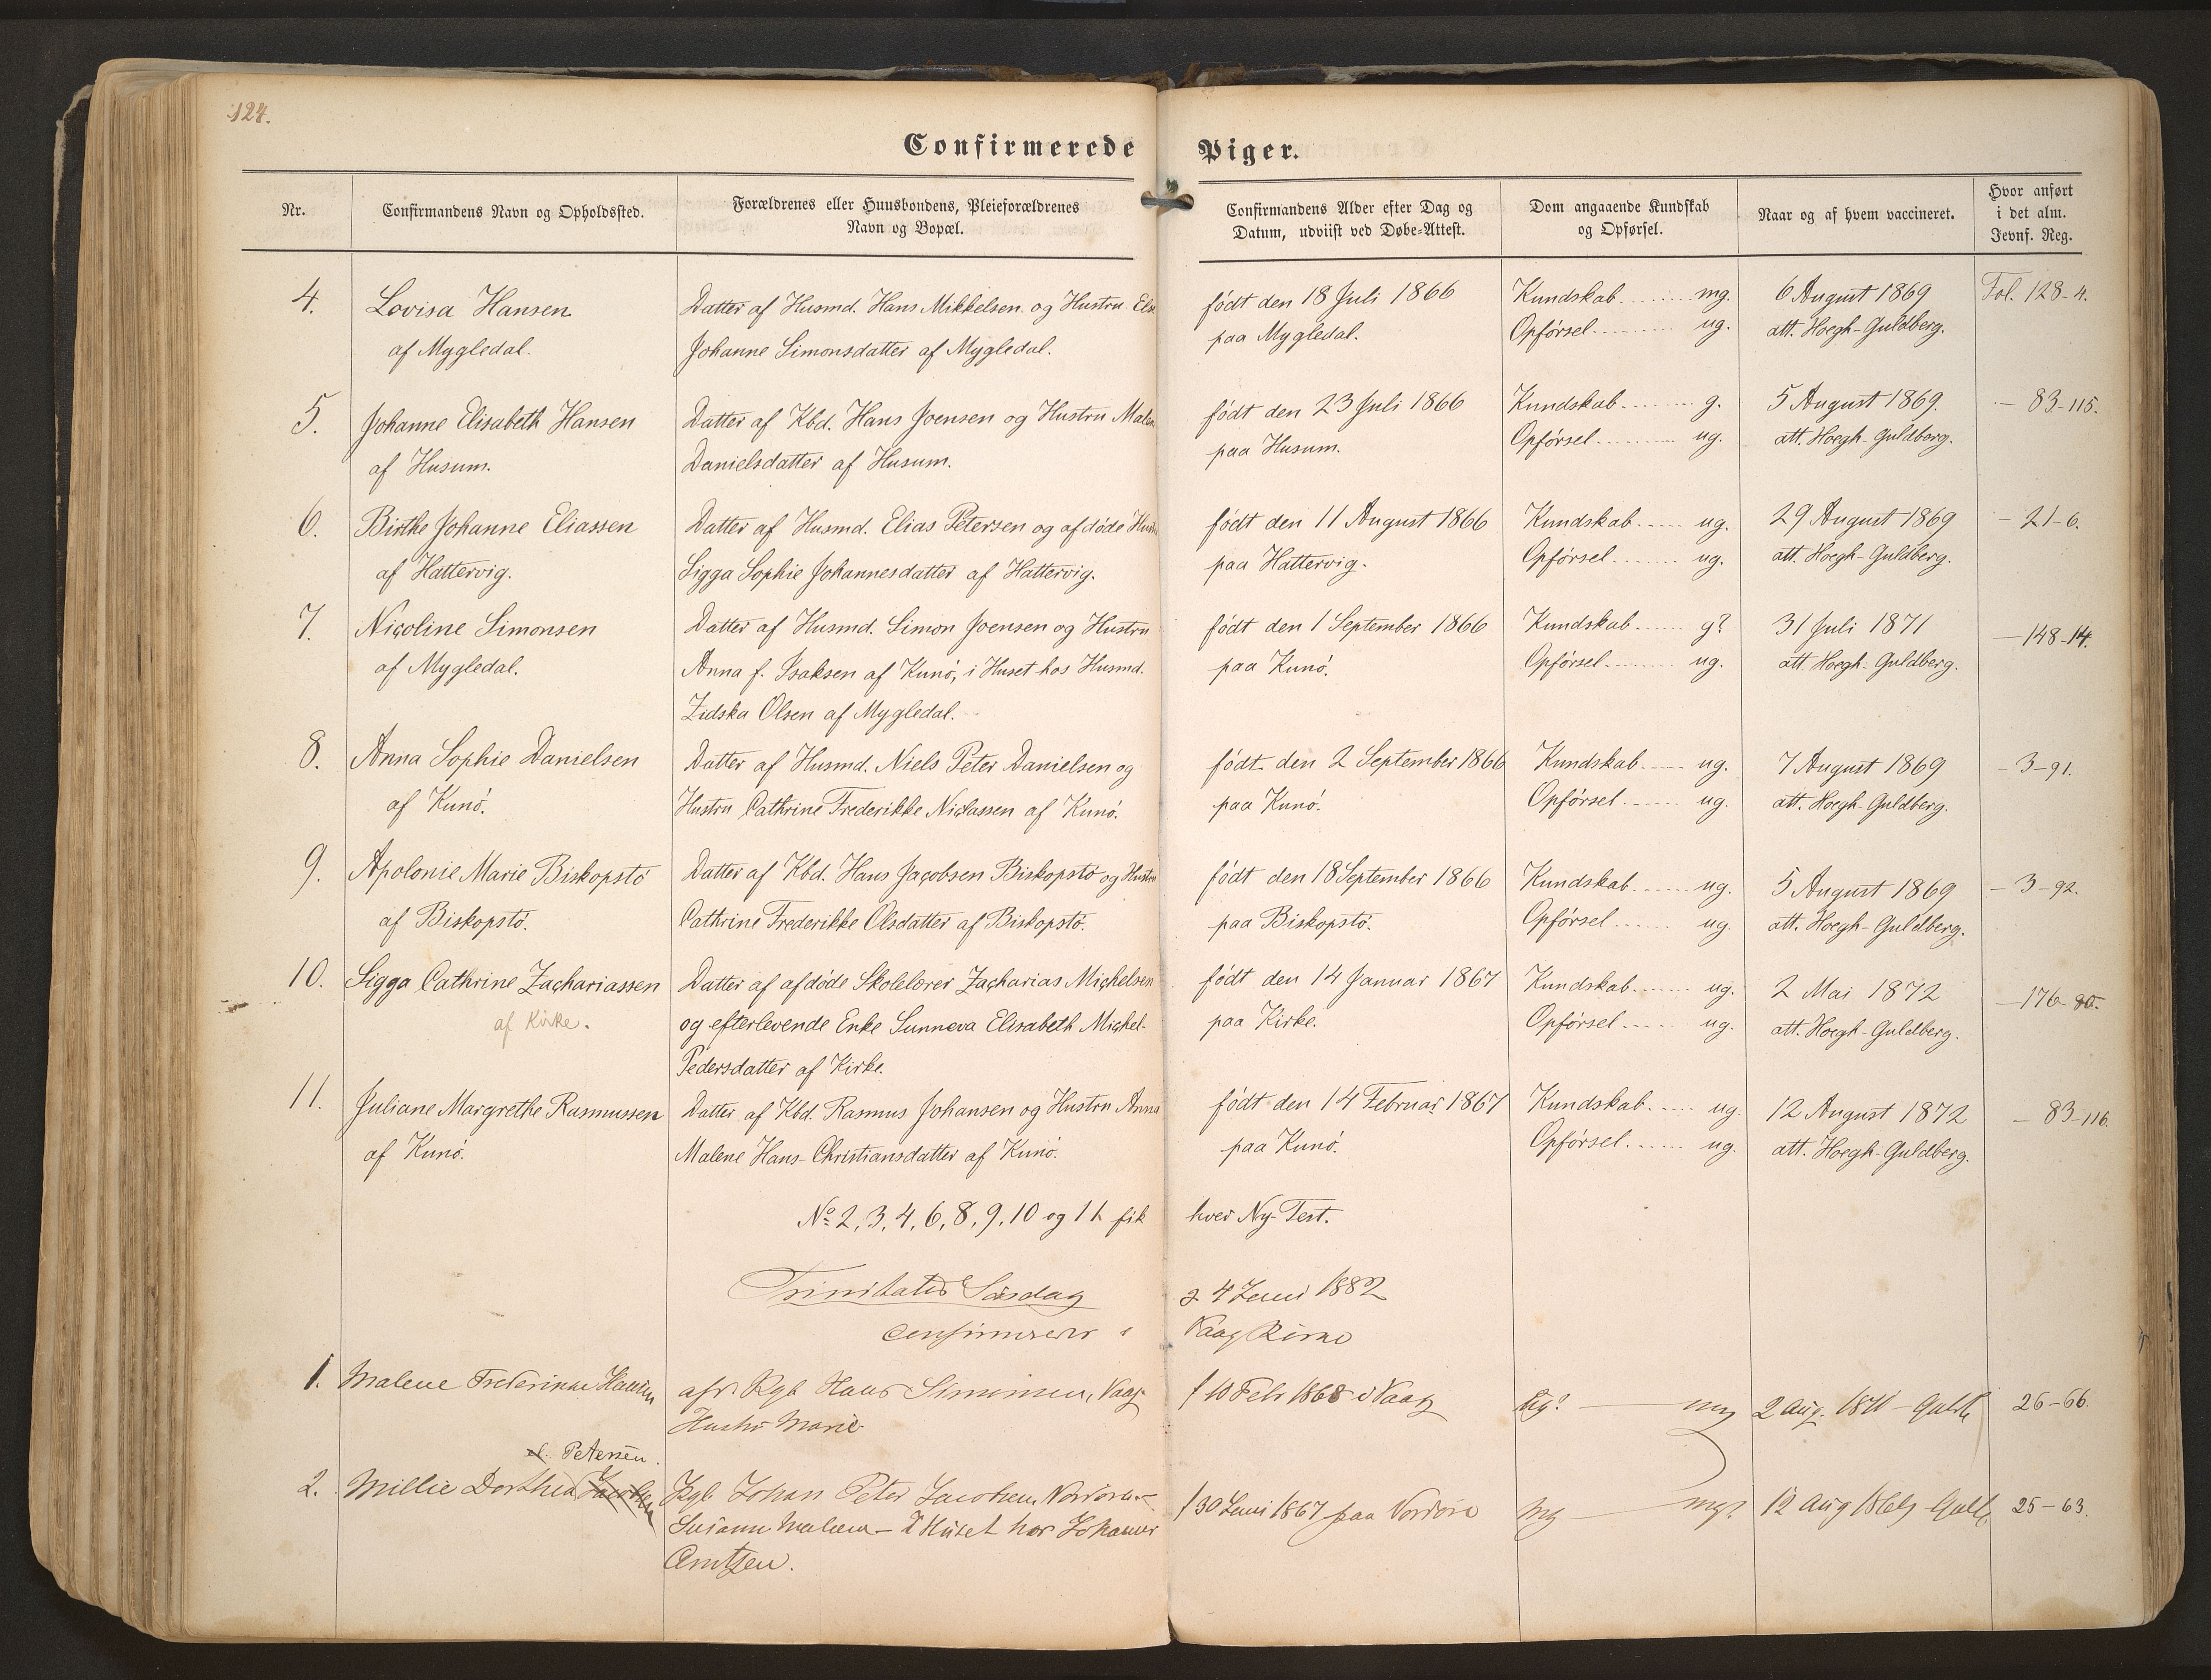 124.
Confirmerede Piger.
Nr.
Confirmandens Navn og Opholdssted.
Forældrenes eller Huusbondens, Pleieforældrenes
Navn og Bopæl.
Confirmandens Alder efter Dag og
Datum, udviist ved Døbe-Attest.
Dom angaaende Kundskab
og Opførsel.
Naar og af hvem vaccineret.
Hvor anført
i det alm.
Jevnf. Reg.
4.
Lovisa Hansen
af Mygledal.
Datter af Husmd. Hans Mikkelsen og Hustru Else
Johanne Simonsdatter af Mygledal.
født den 18 Juli 1866
paa Mygledal.
Kundskab........mg.
Opførsel.......ug.
6 August 1869
att. Hoegh-Guldberg.
Fol. 128-4.
5.
Johanne Elisabeth Hansen
af Husum.
Datter af Kbd. Hans Joensen og Hustru Malen
Danielsdatter af Husum.
født den 23 Juli 1866
paa Husum.
Kundskab.......g.
Opførsel.......ug.
5 August 1869.
att. Hoegh-Guldberg.
- 83-115.
6.
Birthe Johanne Eliassen
af Hattervig.
Datter af Husmd. Elias Petersen og afdøde Hustru
Sigga Sophie Johannesdatter af Hattervig.
født den 11 August 1866
paa Hattervig.
Kundskab.....ug.
Opførsel......ug.
29 August 1869
att. Hoegh-Guldberg.
- 21-6.
7.
Nicoline Simonsen
af Mygledal.
Datter af Husmd. Simon Joensen og Hustru
Anna f. Isaksen af Kunø, i Huset hos Husmd.
Zidska Olsen af Mygledal.
født den 1 September 1866
paa Kunø.
Kundskab......g?
Opførsel.......ug.
31 Juli 1871
att. Hoegh-Guldberg.
-148-14.
8.
Anna Sophie Danielsen
af Kunø.
Datter af Husmd. Niels Peter Danielsen og
Hustru Cathrine Frederikke Niclassen af Kunø.
født den 2 September 1866
paa Kunø.
Kundskab.....ug.
Opførsel......ug.
7 August 1869
att. Hoegh-Guldberg.
- 3-91.
9.
Apolonie Marie Biskopstø
af Biskopstø.
Datter af Kbd. Hans Jacobsen Biskopstø og Hustru
Cathrine Frederikke Olsdatter af Biskopstø.
født den 18 September 1866
paa Biskopstø.
Kundskab......ug.
Opførsel......ug.
5 August 1869
att. Hoegh-Guldberg.
- 3-92.
10.
Sigga Cathrine Zachariassen
af Kirke.
Datter af afdøde Skolelærer Zacharias Michelsen
og efterlevende Enke Sunneva Elisabeth Michel-
Pedersdatter af Kirke.
født den 14 Januar 1867
paa Kirke.
Kundskab......ug.
Opførsel.....ug.
2 Mai 1872
att. Hoegh-Guldberg.
-176-80.
11.
Juliane Margrethe Rasmussen
af Kunø.
Datter af Kbd. Rasmus Johansen og Hustru Anna
Malene Hans-Christiansdatter af Kunø.
født den 14 Februar 1867
paa Kunø.
Kundskab.....ug.
Opførsel......ug.
12 August 1872
att. Hoegh-Guldberg.
- 83-116.
No 2, 3, 4, 6, 8, 9, 10 og 11 fik hver Ny-Test.
Trinitatis Søndag 4 Juni 1882
Vaag Kirke
1.
Malene Frederikke Hansen
Kgb Hans Simonsen, Vaag
Hustru Marie
f 10 Febr 1868 i Vaag
ug?
mg
2 Aug. 1870 - Guldb
26-66.
Petersen.
2.
Millie Dorthea Jacobsen
Kgb Johan Peter Jacobsen
Susanne Malene - I Huset hos Johannes
Arntzen.
f 30 Juni 1867 paa
mg
mg?
12 Aug 1869 Guldb
25-63.